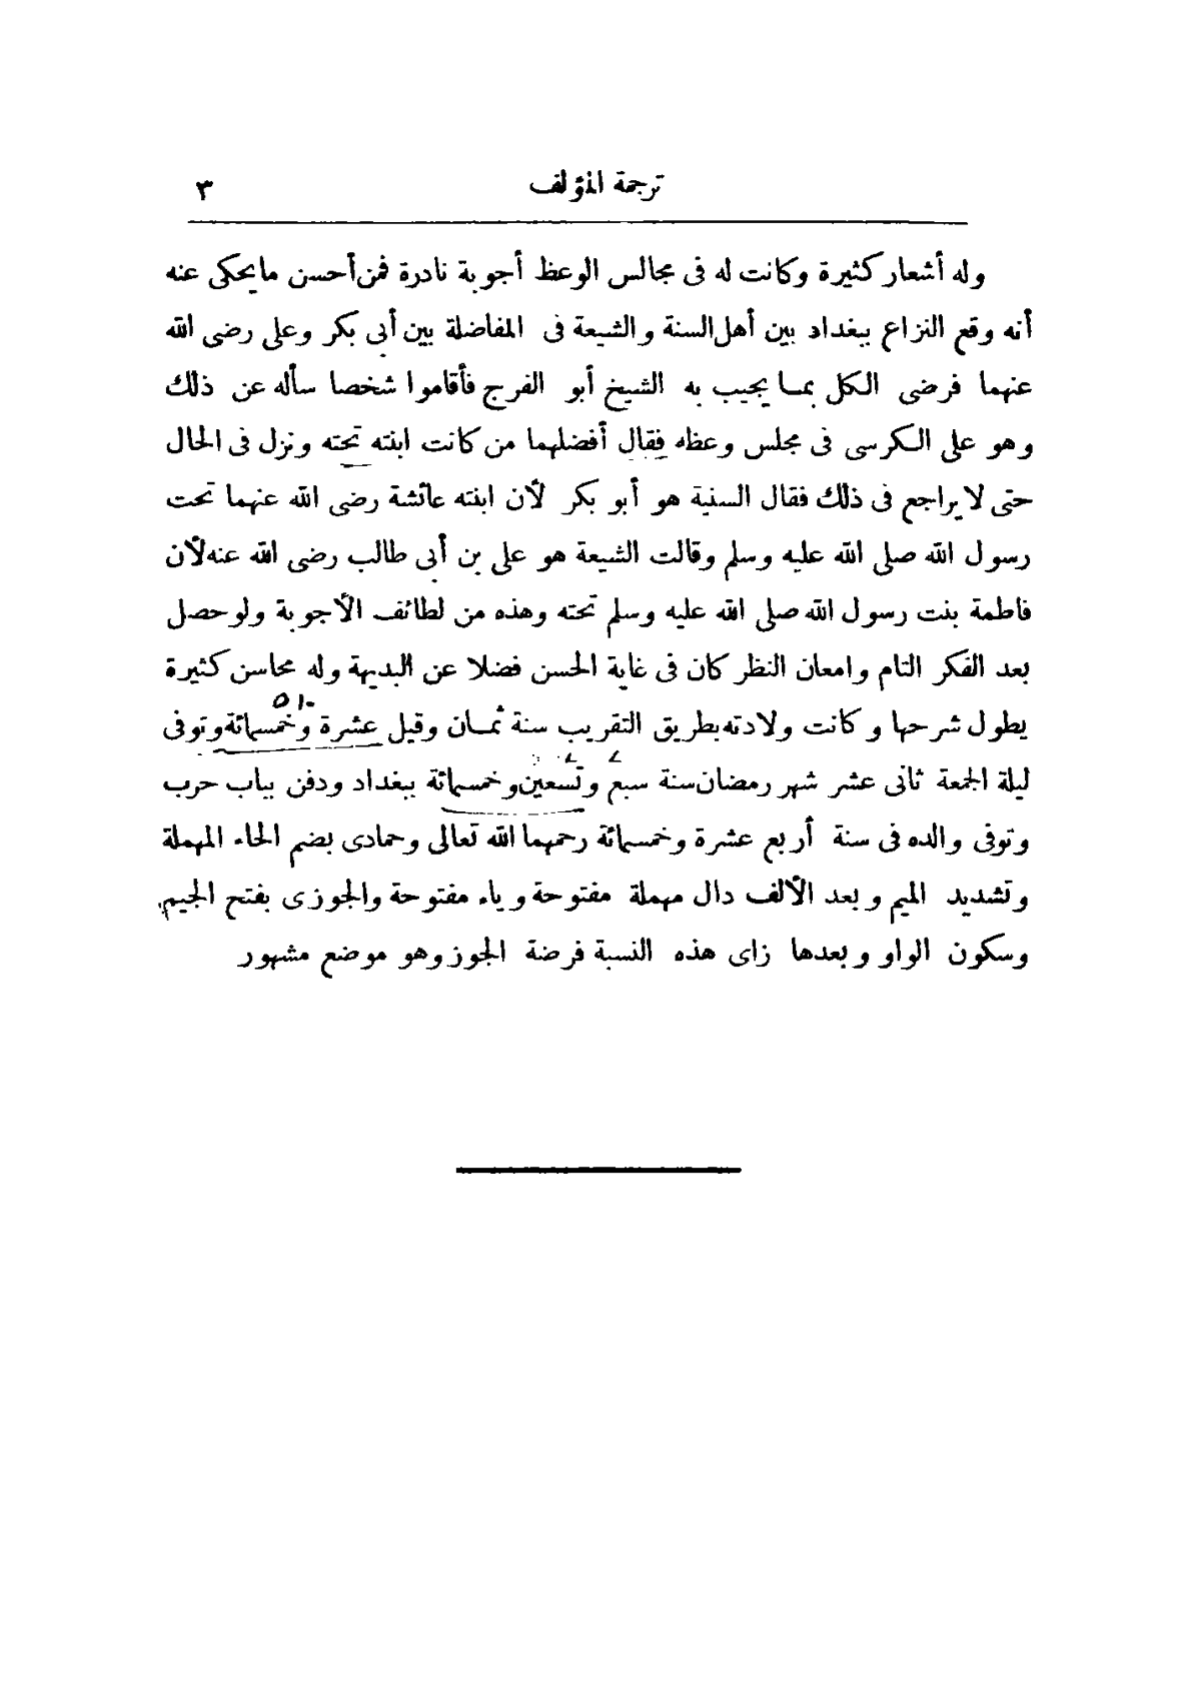 ترجمة المؤلف ٣
وله أشعار كثيرة وكانت له فى مجالس الوعظ أجوبة نادرة فمن أحسن مايحكى عنه
أنه وقع النزاع ببغداد بين أهل السنة والشيعة فى المفاضلة بين أبى بكر وعلى رضى الله
عنهما فرضى الكل بما يجيب به الشيخ أبو الفرج فأقاموا شخصا سأله عن ذلك
وهو على الكرسى فى مجلس وعظه فقال أفضلهما من كانت ابنته تحته ونزل فى الحال
حتى لا يراجع فى ذلك فقال السنية هو أبو بكر لأن ابنته عائشة رضى الله عنهما تحت
رسول الله صلى الله عليه وسلم وقالت الشيعة هو على بن أبى طالب رضى الله عنه لأن
فاطمة بنت رسول الله صلى الله عليه وسلم تحته وهذه من لطائف الأجوبة ولو حصل
بعد الفكر التام وامعان النظر كان فى غاية الحسن فضلا عن البديهة وله محاسن كثيرة
٥١٠
يطول شرحها وكانت ولادته بطريق التقريب سنة ثمان وقيل عشرة وخمسمائة وتوفى
ليلة الجمعة ثانى عشر شهر رمضان سنة سبع وتسعين وخمسمائة ببغداد ودفن بباب حرب
وتوفى والده فى سنة أربع عشرة وخمسمائة رحمهما الله تعالى وحمادى بضم الحاء المهملة
وتشديد الميم وبعد الألف دال مهملة مفتوحة وياء مفتوحة والجوزى بفتح الجيم
وسكون الواو وبعدها زاى هذه النسبة فرضة الجوز وهو موضع مشهور